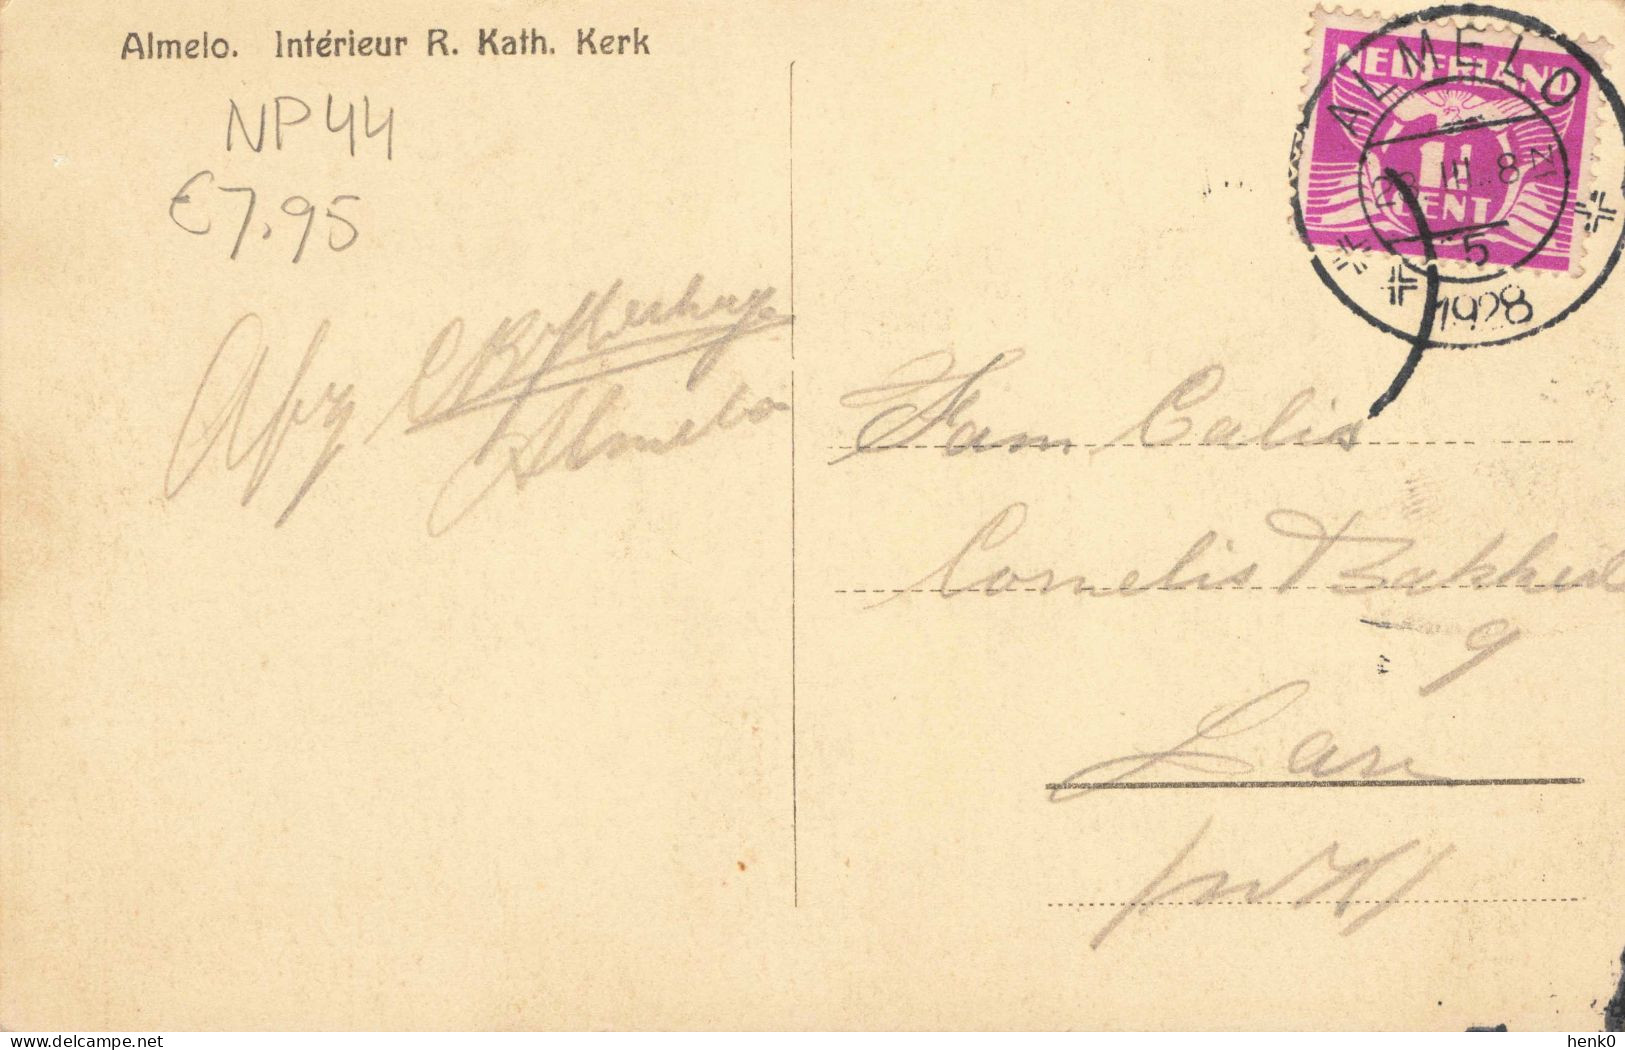 Almelo. Intérieur R. Kath. Kerk
NP44
€7,95
Afz
Almelo
NEDERLAND
1½
CENT
ALMELO
28 III. 8 N
5
1928
Fam Calis
Cornelis Bakker
9
Laren
(NH)
henk0